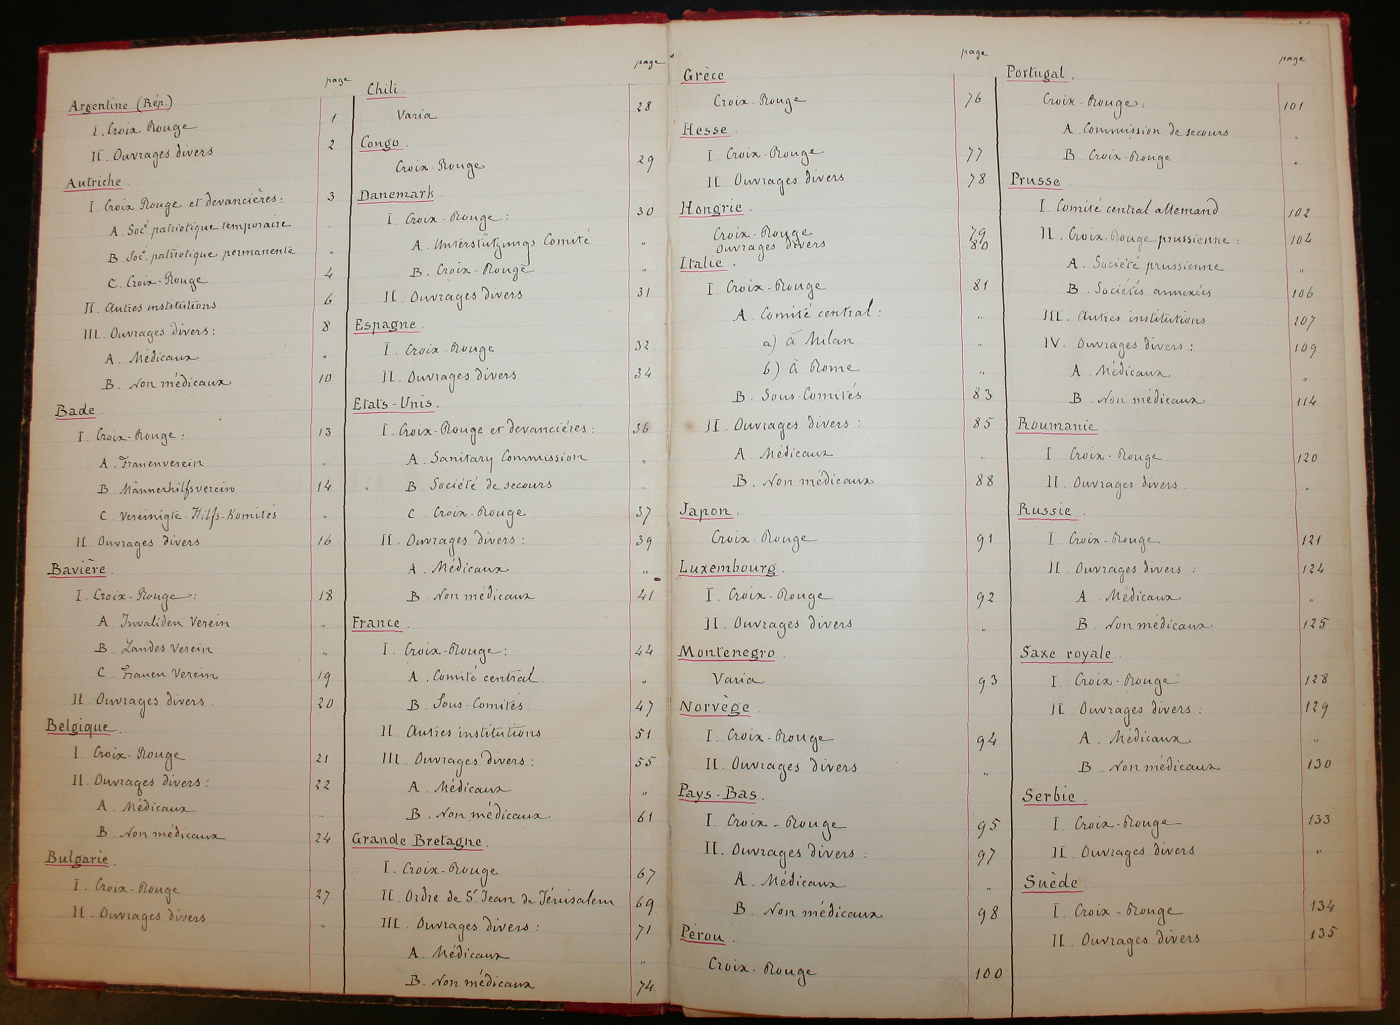 page
Argentine (Rép.)
I. Croix Rouge 1
II. Ouvrages divers 2
Autriche.
I. Croix Rouge et devancières: 3
A. Socté patriotique temporaire
B. Socté patriotique permanente "
C. Croix-Rouge 4
II. Autres institutions 6
III. Ouvrages divers: 8
A. Médicaux "
B. Non médicaux 10
Bade
I. Croix-Rouge: 13
A. Frauenverein
B. Männerhilfsverein 14
C. Vereinigte-Hilfs-Komités "
II. Ouvrages divers 16
Bavière.
I. Croix-Rouge: 18
A. Invaliden Verein "
B. Landes Verein "
C. Frauen Verein 19
II. Ouvrages divers 20
Belgique.
I. Croix-Rouge 21
II. Ouvrages divers: 22
A. Médicaux
B. Non médicaux 24
Bulgarie.
I. Croix-Rouge 27
II. Ouvrages divers "
page
Chili.
Varia 28
Congo.
Croix-Rouge 29
Danemark.
I. Croix-Rouge: 30
A. Unterstützungs Comité "
B. Croix-Rouge "
II. Ouvrages divers 31
Espagne.
I. Croix-Rouge 32
II. Ouvrages divers 34
Etats-Unis.
I. Croix-Rouge et devancières: 36
A. Sanitary Commission "
B. Société de secours "
C. Croix-Rouge 37
II. Ouvrages divers: 39
A. Médicaux "
B. Non médicaux 41
France.
I. Croix-Rouge: 44
A. Comité central "
B. Sous-Comités 47
II. Autres institutions 51
III. Ouvrages divers: 55
A. Médicaux "
B. Non médicaux 61
Grande Bretagne.
I. Croix-Rouge 67
II. Ordre de St Jean de Jérusalem 69
III. Ouvrages divers: 71
A. Médicaux "
B. Non médicaux 74
page
Grèce
Croix-Rouge 76
Hesse.
I. Croix-Rouge 77
II. Ouvrages divers 78
Hongrie.
Croix-Rouge 79
Ouvrages divers 80
Italie.
I. Croix-Rouge 81
A. Comité central: "
a) à Milan "
b) à Rome "
B. Sous-Comités 83
II. Ouvrages divers: 85
A. Médicaux "
B. Non médicaux 88
Japon.
Croix-Rouge 91
Luxembourg.
I. Croix-Rouge 92
II. Ouvrages divers "
Montenegro
Varia 93
Norvège.
I. Croix-Rouge 94
II. Ouvrages divers "
Pays-Bas.
I. Croix-Rouge 95
II. Ouvrages divers: 97
A. Médicaux "
B. Non médicaux 98
Pérou.
Croix-Rouge 100
page
Portugal.
Croix-Rouge: 101
A. Commission de secours "
B. Croix-Rouge "
Prusse.
I. Comité central allemand 102
II. Croix-Rouge prussienne: 104
A. Société prussienne "
B. Sociétés annexées 106
III. Autres institutions 107
IV. Ouvrages divers: 109
A. Médicaux "
B. Non médicaux 114
Roumanie.
I. Croix-Rouge 120
II. Ouvrages divers "
Russie.
I. Croix-Rouge 121
II. Ouvrages divers: 124
A. Médicaux "
B. Non médicaux 125
Saxe royale.
I. Croix-Rouge 128
II. Ouvrages divers: 129
A. Médicaux "
B. Non médicaux 130
Serbie.
I. Croix-Rouge 133
II. Ouvrages divers "
Suède.
I. Croix-Rouge 134
II. Ouvrages divers 135